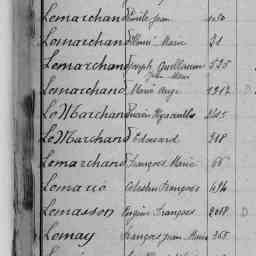 Lemarchand Emile Jean
Lemarchand Henri Marie 31
Lemarchand Joseph Guillaume 535
Jean Marie
Lemarchand Marie Ange 1217
Le Marchand Hyacinthe
Le Marchand Edouard 318
Lemarchand François Marie 66
Lemarié Célestin François
Lemasson Eugène François 2018 D
Lemay François Jean Marie 365